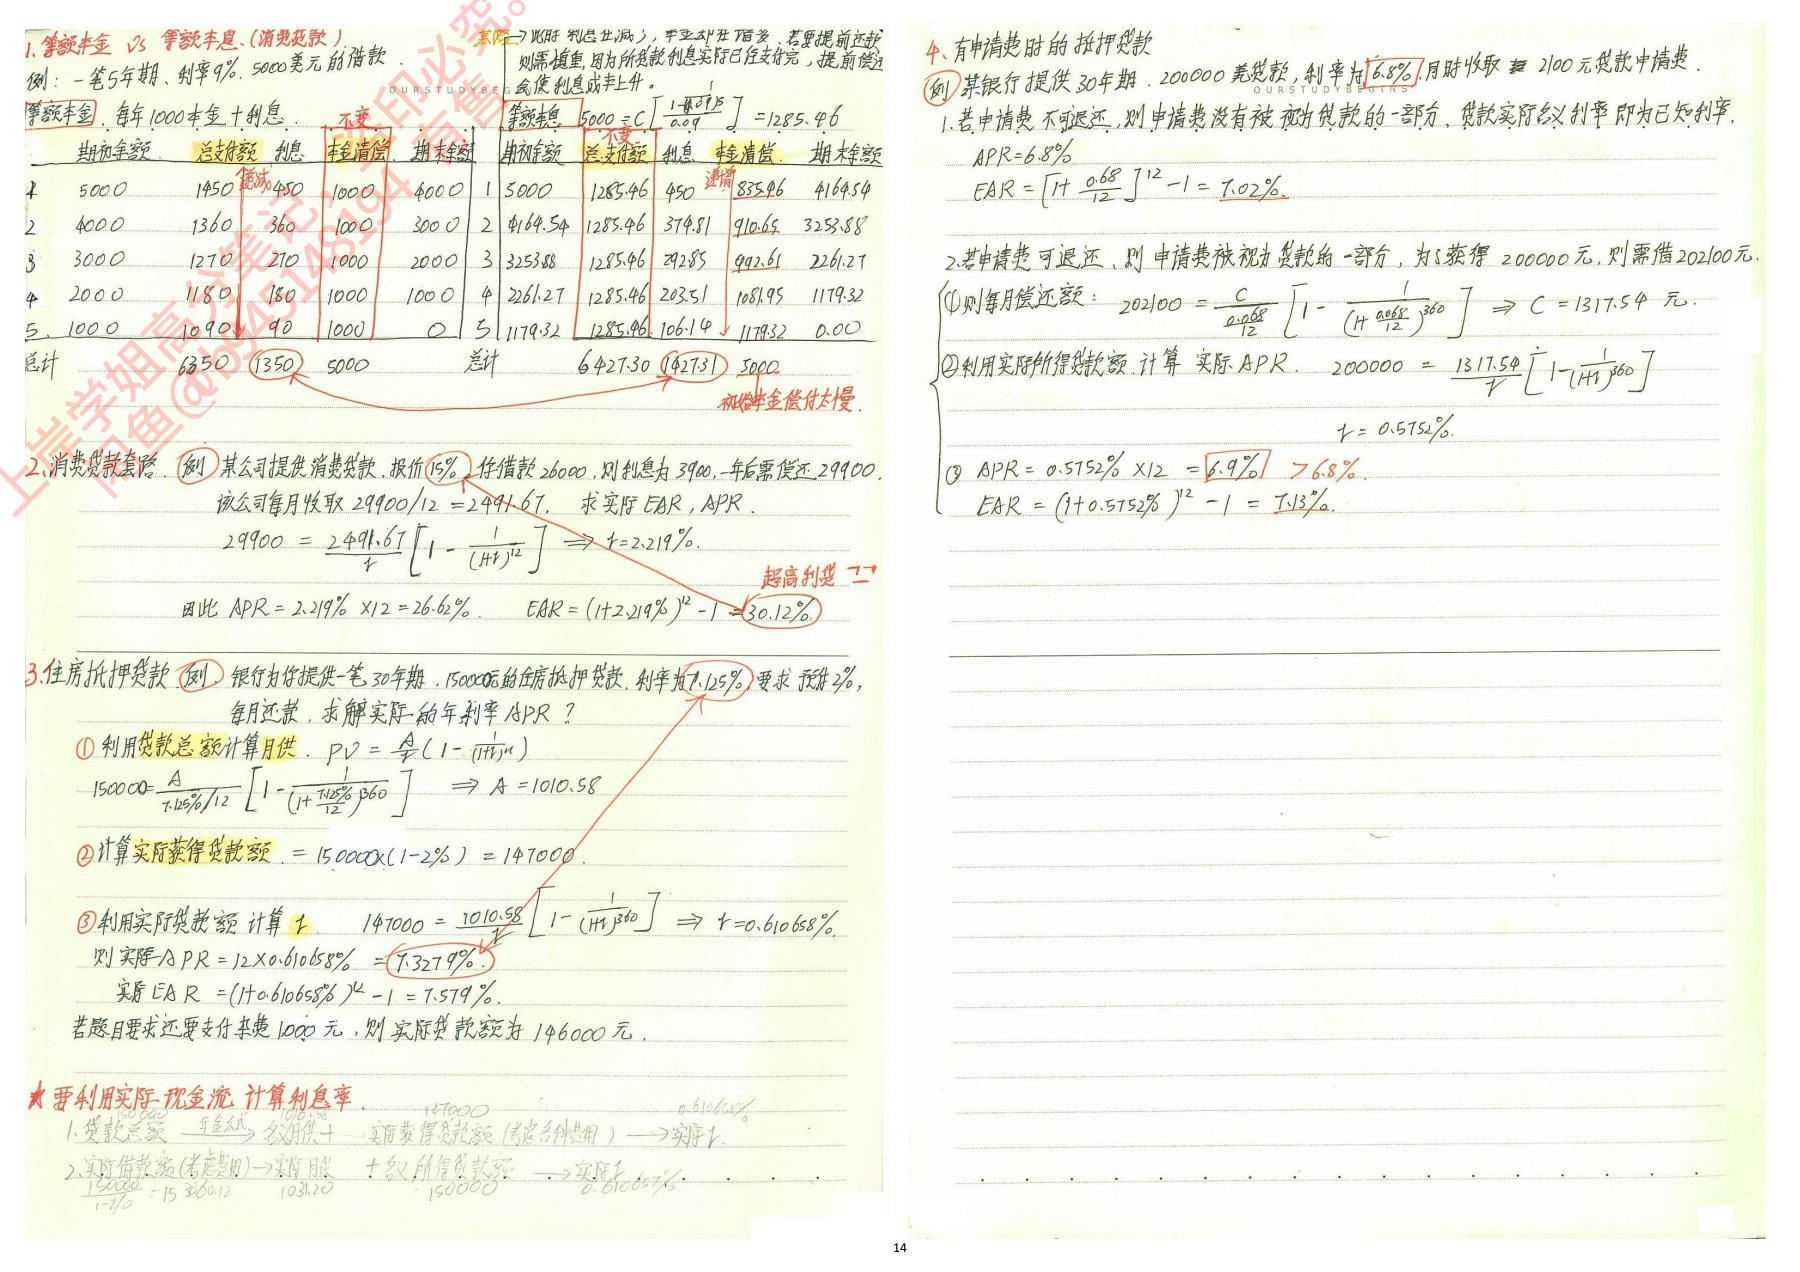 1. 等额本金 vs 等额本息.(消费贷款)
例: 一笔5年期、利率9%. 5000美元的借款.
等额本金. 每年1000本金十利息.
不变
期初余额. 总支付额 利息 本金清偿. 期末余额
递减
1 5000 1450 450 1000 4000
2 4000 1360 360 1000 3000
3 3000 1270 270 1000 2000
4 2000 1180 180 1000 1000
5. 1000 1090 90 1000 0
总计 6350 1350 5000
→此时 利息在减少, 本金却在增多. 若要提前还款
则需慎重,因为所贷款利息实际已经支付完, 提前偿还
会使利息成本上升.
OURSTUDYBEGINS
等额本息 5000 = C [(1-1/(1.09)^5)/0.09] = 1285.46
不变
期初余额 总支付额 利息 本金清偿. 期末余额
递增
1 5000 1285.46 450 835.46 4164.54
2 4164.54 1285.46 374.81 910.65 3253.88
3 3253.88 1285.46 292.85 992.61 2261.27
4 2261.27 1285.46 203.51 1081.95 1179.32
5 1179.32 1285.46 106.14 1179.32 0.00
总计 6427.30 1427.31 5000
初始本金偿付太慢.
2、消费贷款套路. 例 某公司提供消费贷款、报价15%. 你借款26000, 则利息为3900,一年后需偿还29900.
该公司每月收取 29900/12 = 2491.67. 求实际 EAR, APR.
29900 = 2491.67/r [1 - 1/(1+r)^12] ⇒ r=2.219%.
超高利贷
因此 APR = 2.219% ×12 = 26.62%. EAR = (1+2.219%)^12 - 1 = 30.12%.
3.住房抵押贷款. 例 银行为你提供一笔30年期. 150000元的住房抵押贷款. 利率为7.125%. 要求预付2%,
每月还款. 求解实际的年利率APR?
① 利用贷款总额计算月供. PV = A/r (1 - 1/(1+r)^n)
150000 = A/(7.125%/12) [1 - 1/(1+7.125%/12)^360] ⇒ A = 1010.58
②计算实际获得贷款额. = 150000×(1-2%) = 147000.
③利用实际贷款额 计算 r 147000 = 1010.58/r [1 - 1/(1+r)^360] ⇒ r=0.610658%.
则实际APR = 12×0.610658% = 7.3279%.
实际EAR = (1+0.610658%)^12 - 1 = 7.579%.
若题目要求还要支付杂费1000元, 则实际贷款额为146000元.
★要利用实际现金流 计算利息率.
150000 1010.58 147000 0.610658%
1. 贷款总额 年金公式→ 名义月供 + 实际获得贷款额 (考虑各种费用) → 实际r.
2.实际借款额(考虑费用)→实际月供 + 名义所得贷款额 → 实际r
150000/1-2% = 153060.12 1031.20 150000 0.610657%
4、有申请费时的抵押贷款
OURSTUDYBEGINS
例 某银行提供30年期. 200000美贷款, 利率为6.8%.同时收取 2100元贷款申请费.
1.若申请费不可退还, 则申请费没有被视为贷款的一部分、贷款实际名义利率即为已知利率.
APR=6.8%
EAR = [1+ 0.68/12]^12 - 1 = 7.02%.
2.若申请费可退还、则申请费被视为贷款的一部分, 为了获得200000元, 则需借202100元.
①则每月偿还额: 202100 = C/(0.068/12) [1 - 1/(1+0.068/12)^360] ⇒ C = 1317.54 元.
②利用实际所得贷款额计算实际APR. 200000 = 1317.54/r [1-1/(1+r)^360]
r = 0.5752%.
③ APR = 0.5752% ×12 = 6.9% >6.8%.
EAR = (1+0.5752%)^12 - 1 = 7.13%.
上岸学姐高分笔记,盗印必究。
闲鱼@b945148194 有售
14